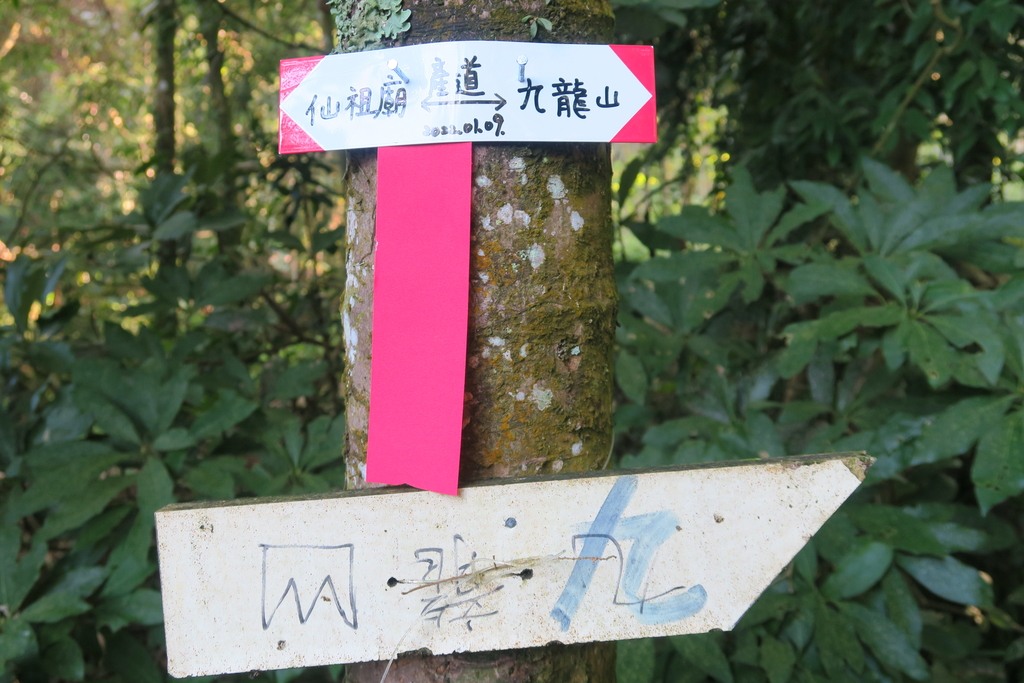 仙祖廟 產道 九龍山
2022.01.09.
九